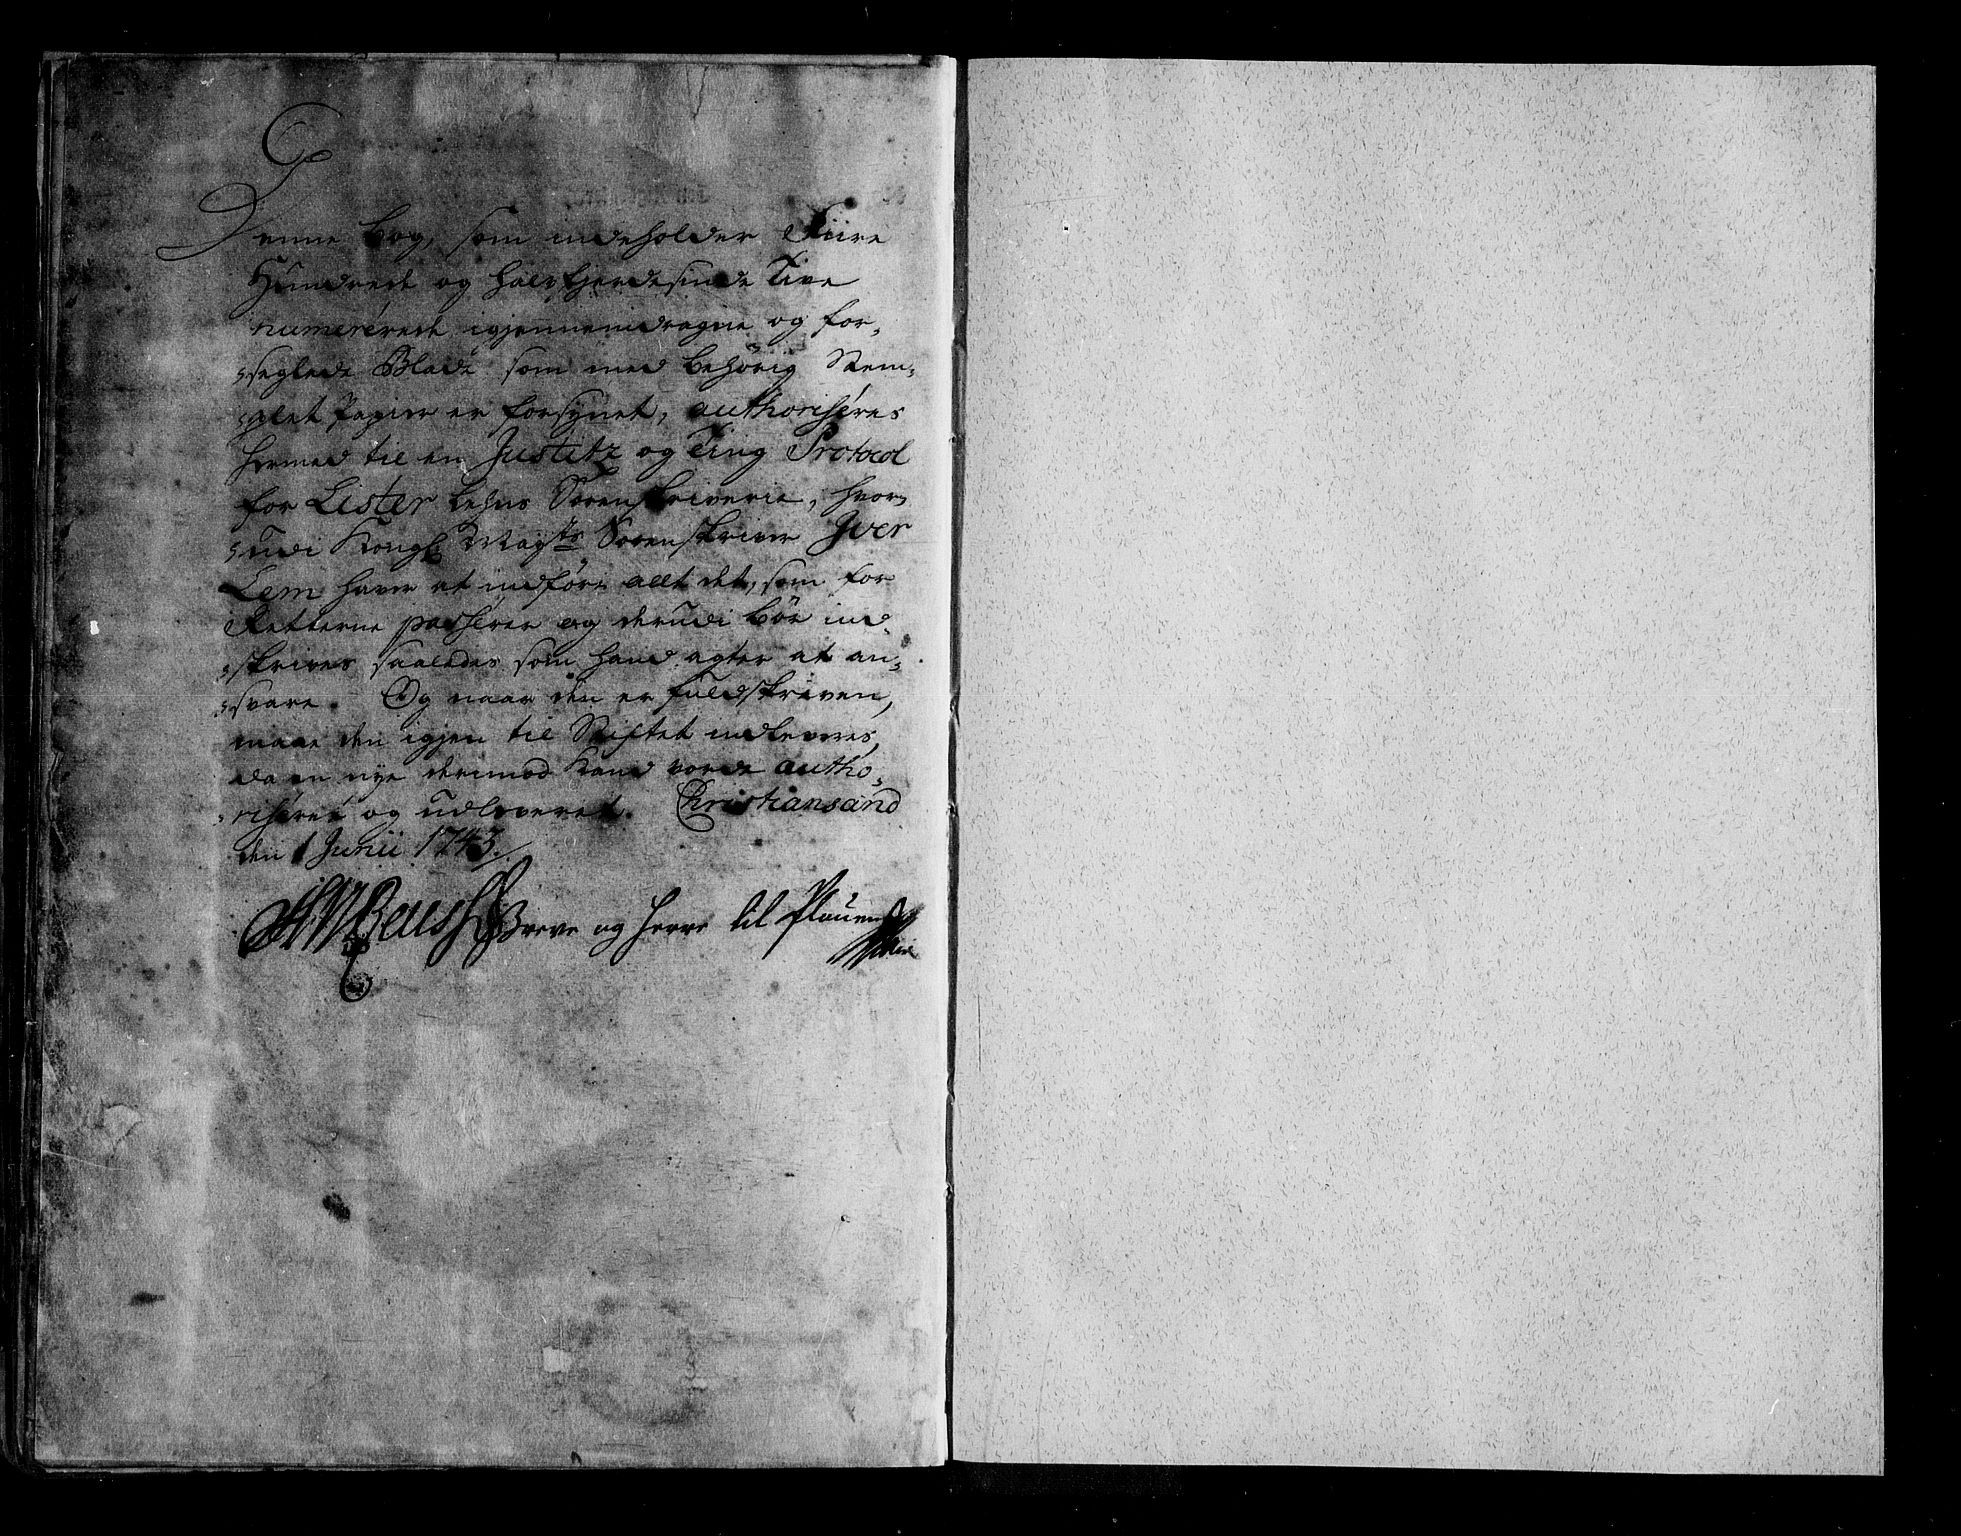 Denne bog, som indeholder Fiire
Hundrede og halvfierdesinde Tive
numererede igjennemdragne og for-
seglede Blade som med behörig Stem-
plet Papir er forsynet, authoriseres
hermed til en Justitz og Ting Protocol
for Lister Lehns Sorenskriverie, hvor-
udi Kongl. Mayts Sorenskriver Iver
Lem haver at indføre alt det, som for
Retterne passerer og derudi bör ind-
skrives saaledes som hand agter at an-
svare. Og naar den er fuldskreven,
maae den igjen til Stiftet indleveres,
da en nye derimod kand vorde autho-
riseret og udleveret. Christiansand
den 1 Junii 1743.
Greve og Herre til Plauen